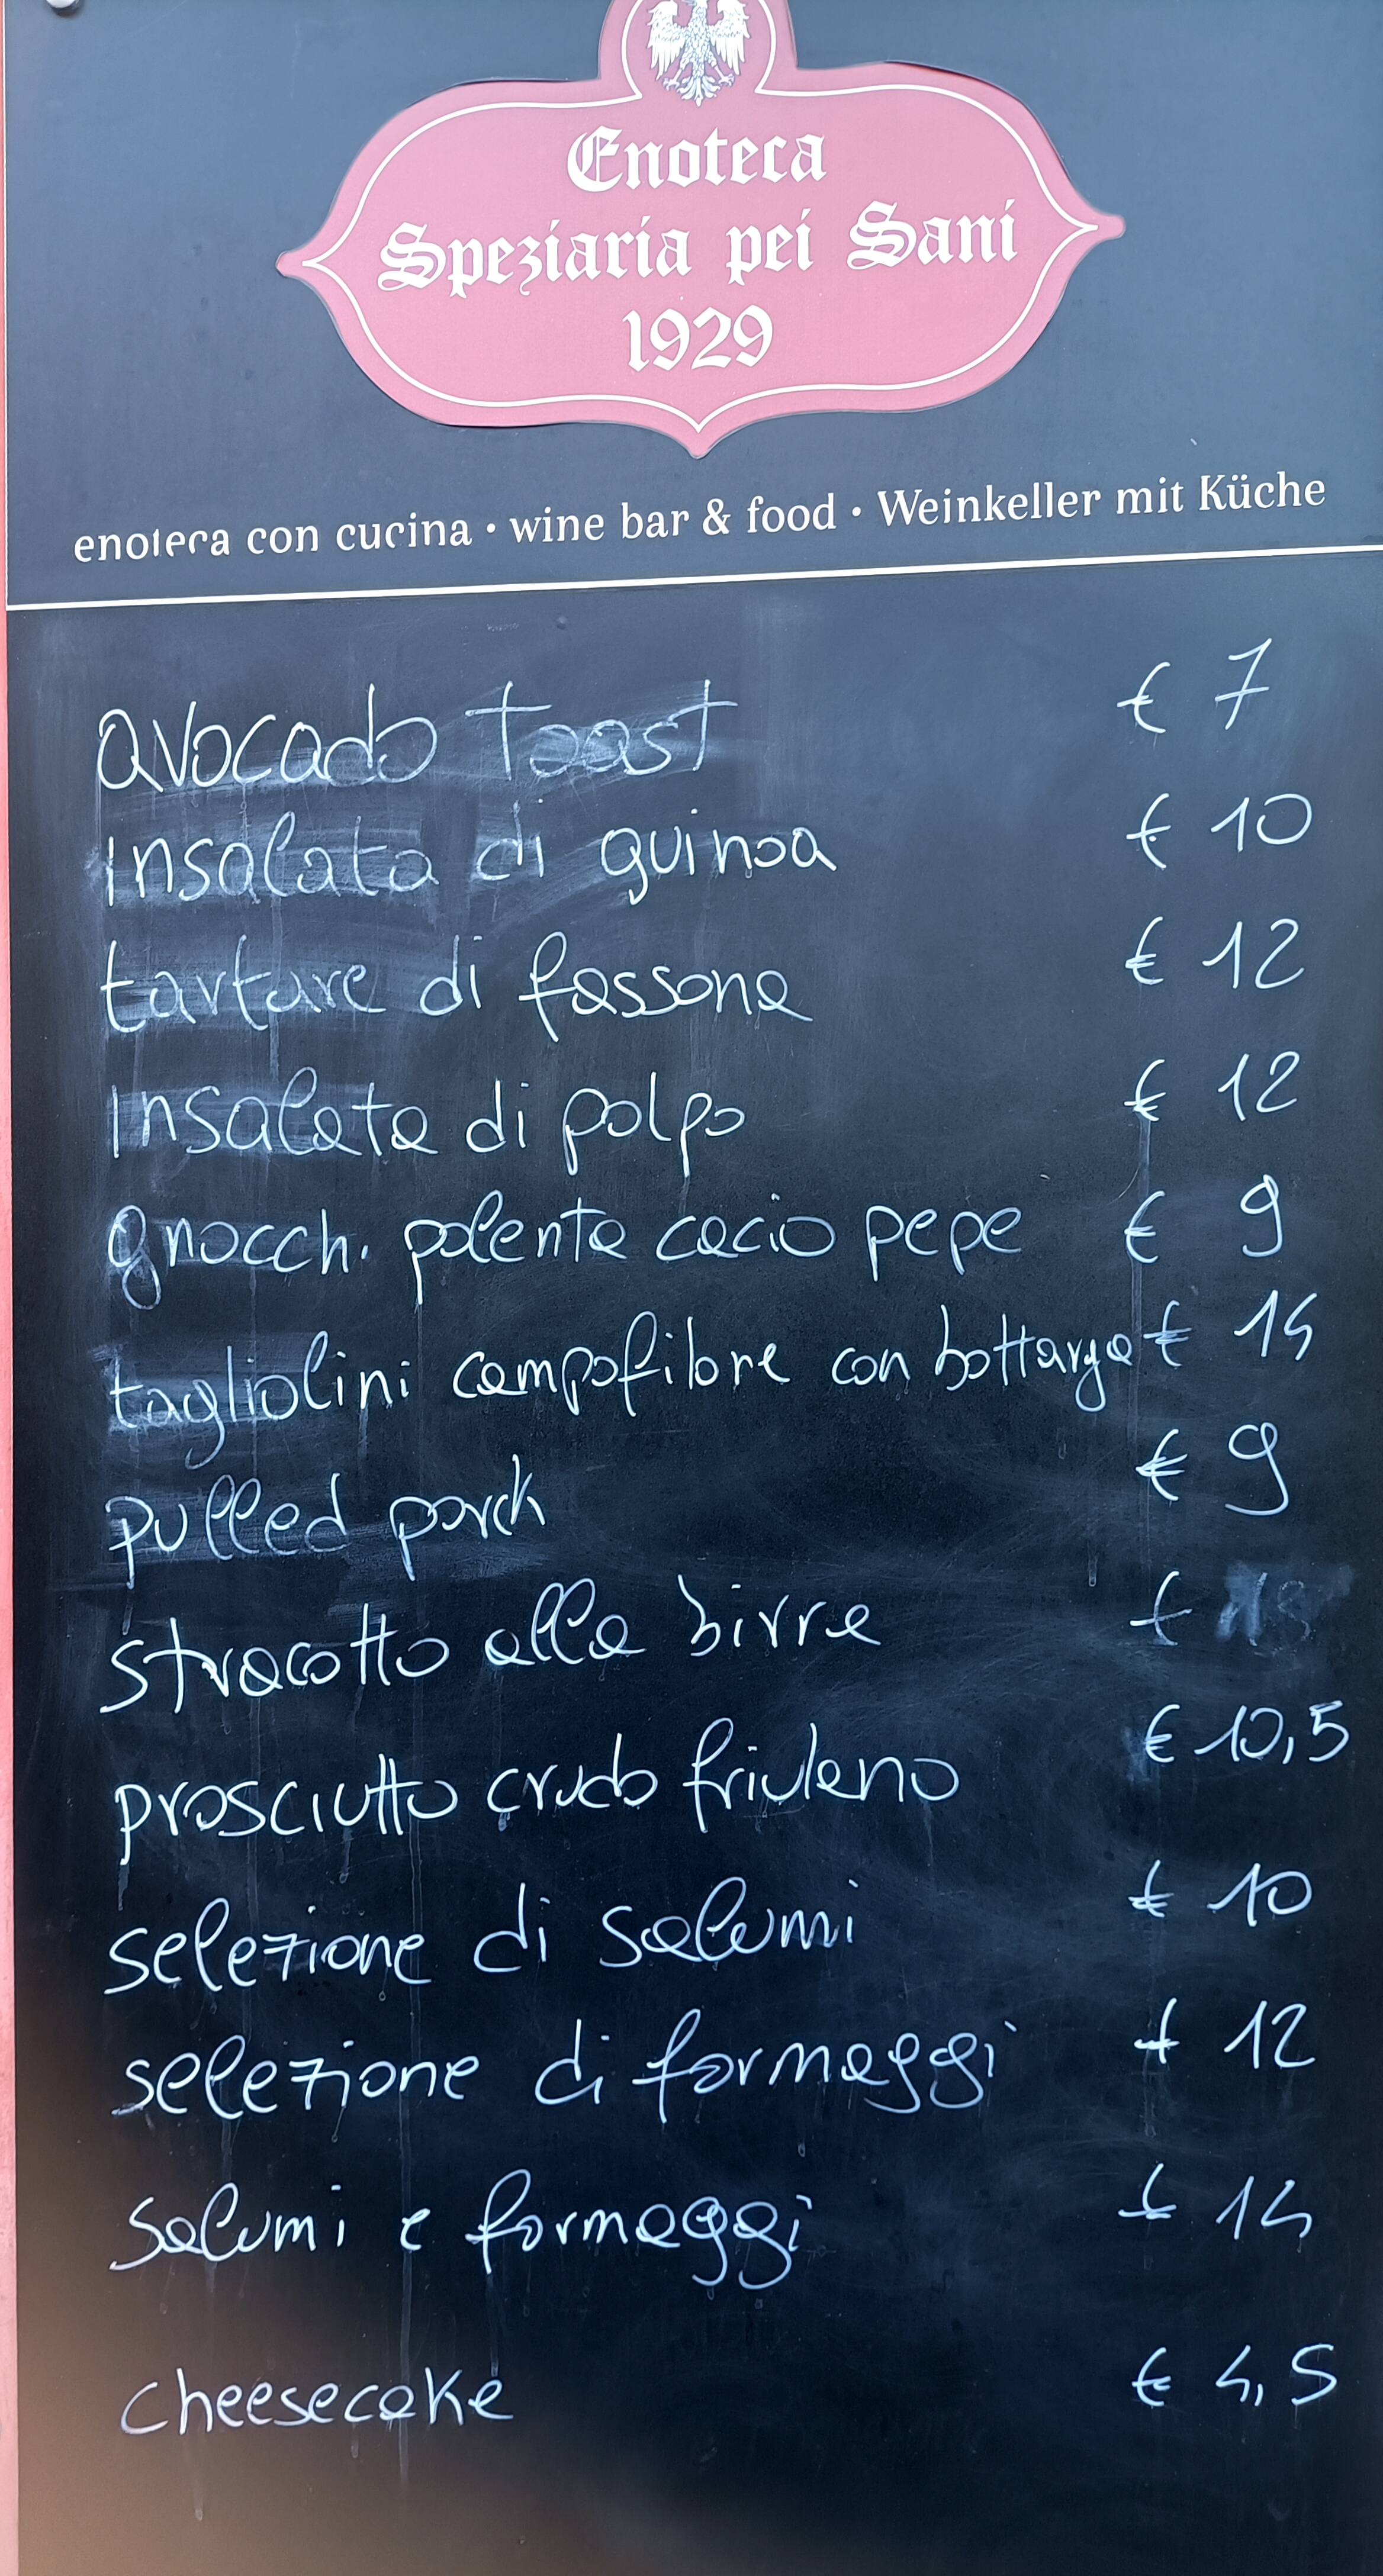 Enoteca
Speziaria pei Sani
1929
enoteca con cucina • wine bar & food • Weinkeller mit Küche
avocado toast € 7
insalata di quinoa € 10
tartare di fassona € 12
insalata di polpo € 12
gnocchi polenta cacio pepe € 9
tagliolini campofilone con bottarga €
pulled porck € 9
stracotto alla birra €
prosciutto crudo friulano € 10,5
selezione di salumi € 10
selezione di formaggi € 12
salumi e formaggi € 14
cheesecake € 4,5